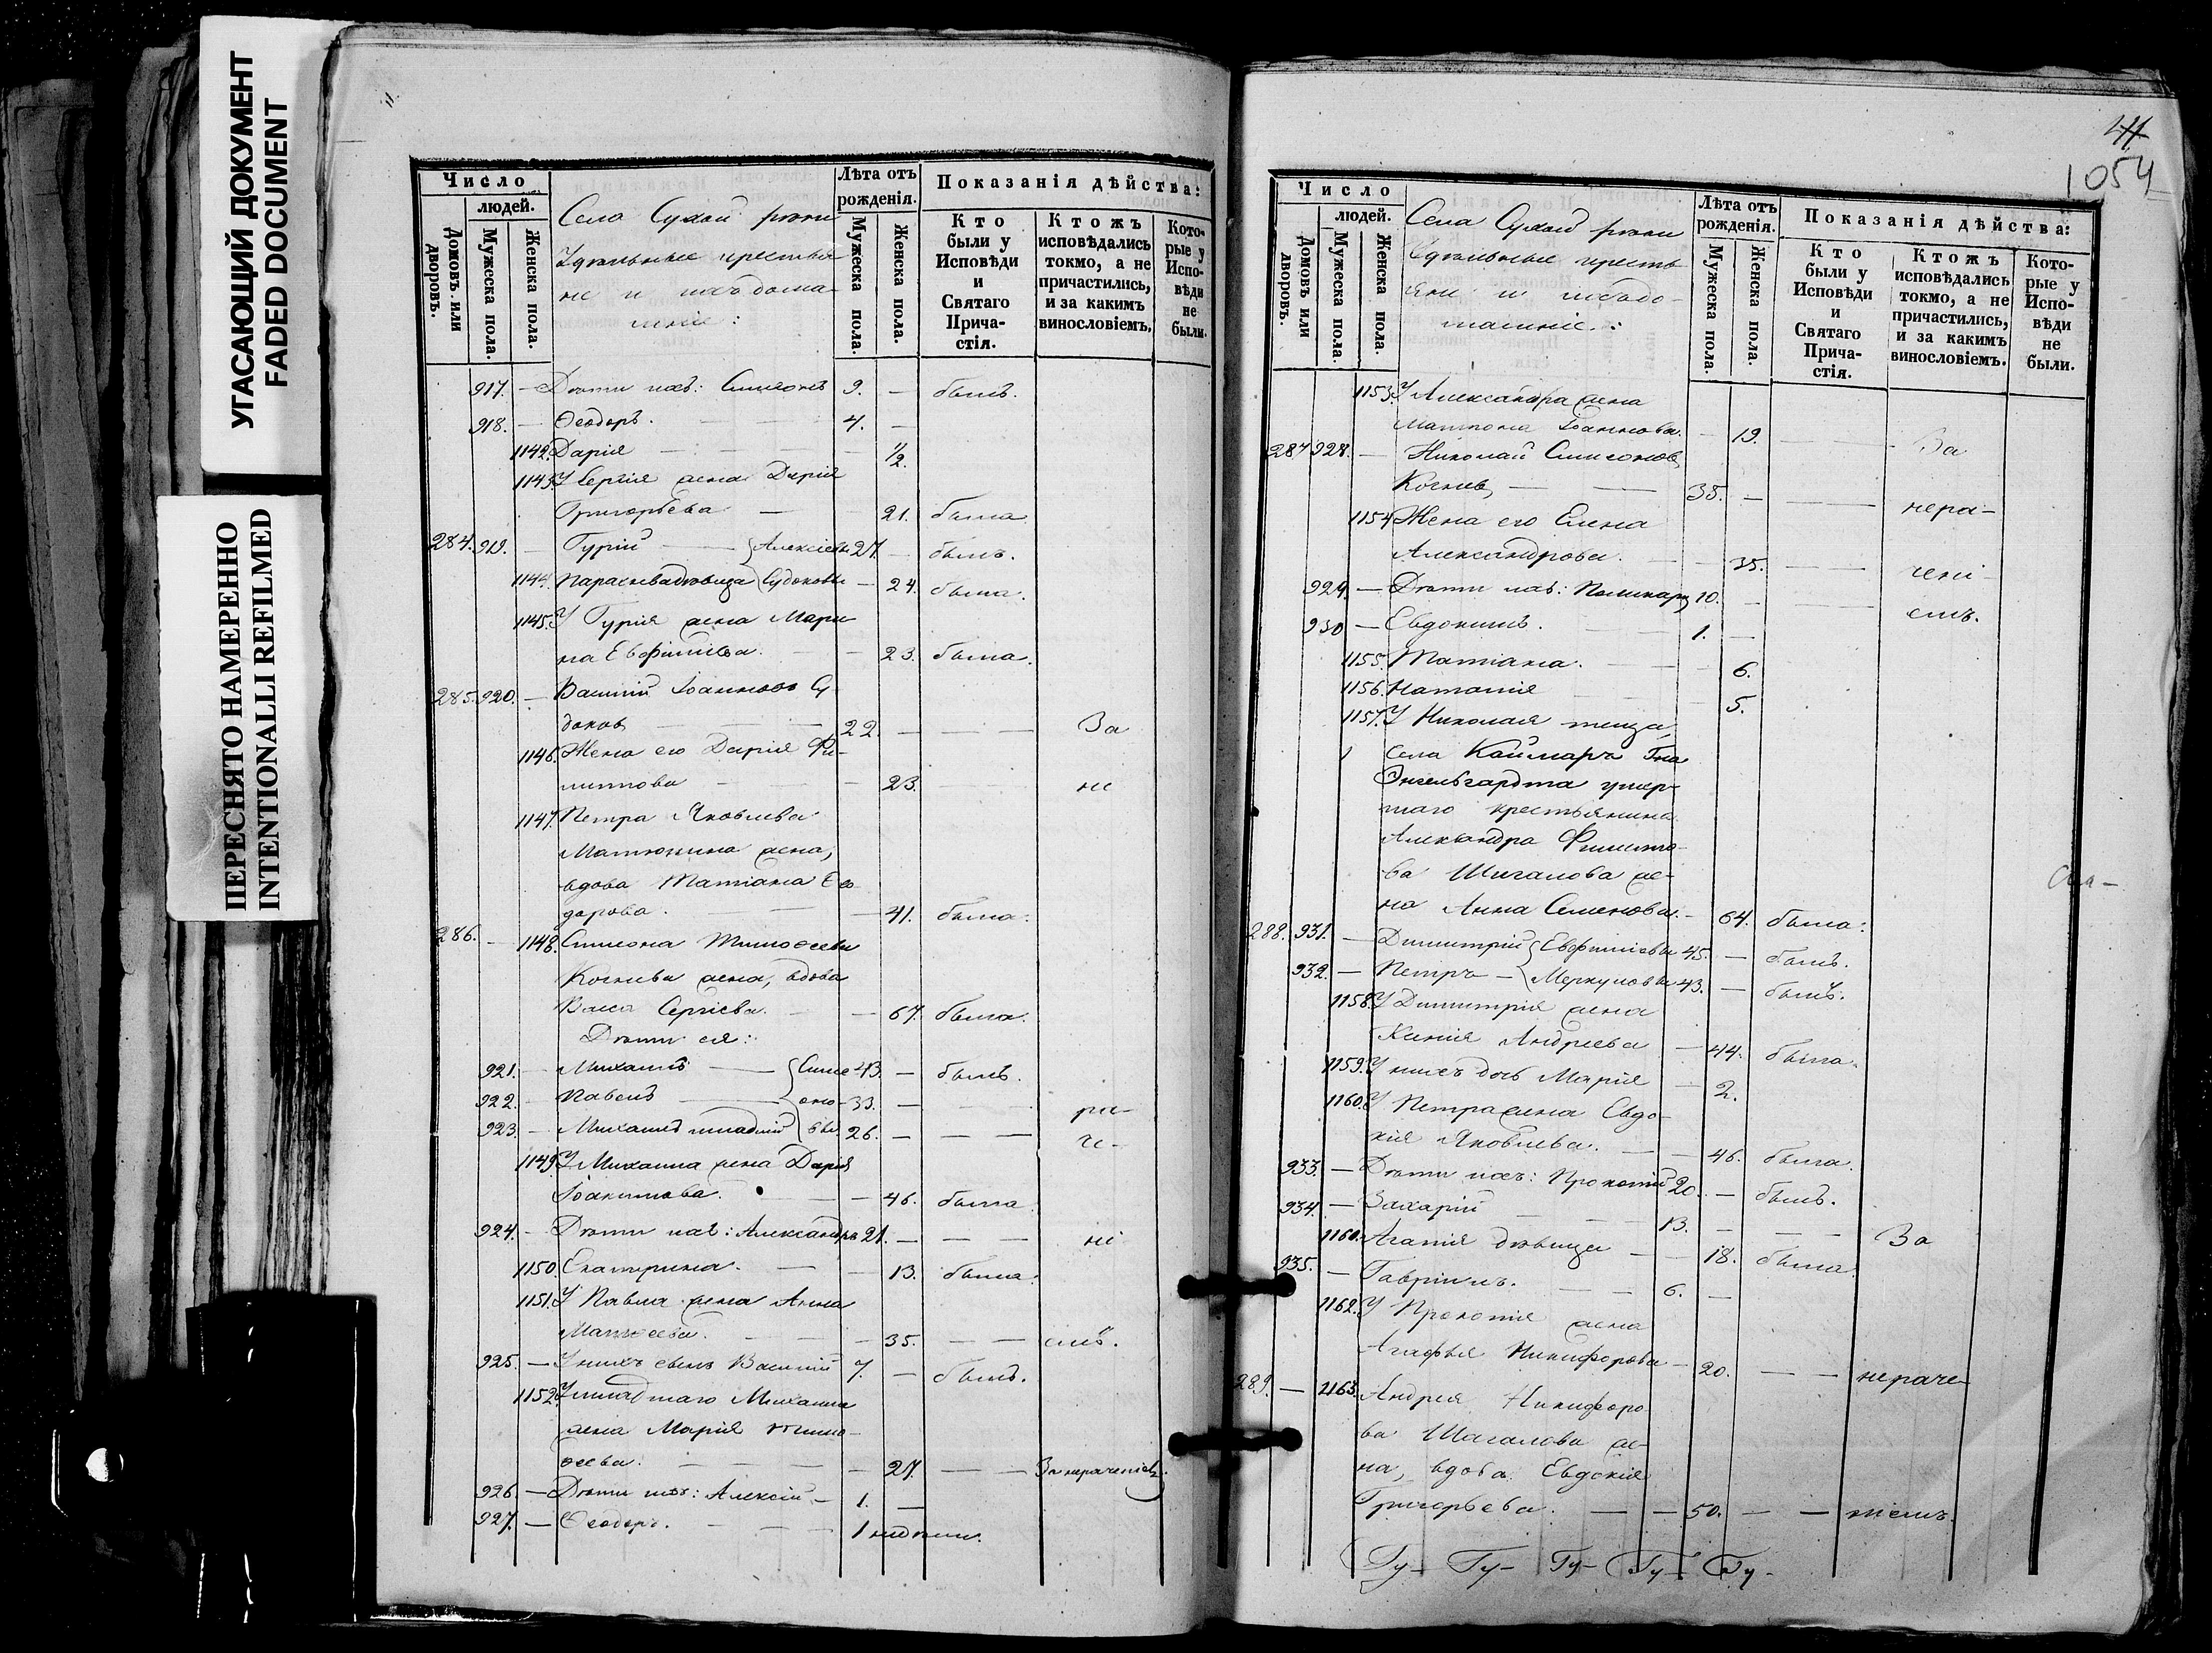 УГАСАЮЩИЙ ДОКУМЕНТ
FADED DOCUMENT
ПЕРЕСНЯТО НАМЕРЕННО
INTENTIONALLI REFILMED
Число
людей.
Домовъ или дворовъ.
Мужеска пола.
Женска пола.
Села Сухой рѣки
Удѣльные крестья
не и ихъ дома-
шніе:
Лѣта отъ рожденія.
Мужеска пола.
Женска пола.
Показанія дѣйства:
Кто были у Исповѣди и Святаго Прича-стія.
Ктожъ исповѣдались токмо, а не причастились, и за какимъ винословіемъ.
Кото-рые у Испо-вѣди не были.
917. — Дѣти ихъ: Симеонъ 9. — былъ.
918. — Ѳеодоръ. 4. —
1142. Дарія — — 1/2.
1143. У Сергія жена Дарія
Григорьева — 21. была
284. 919. — Гурій — Алексіевы 27. — былъ.
1144. Параскева дѣвица Судоковы — 24. была.
1145. У Гурія жена Мари
на Евфиміева. — 23. была.
285. 920. — Василій Іоанновъ Су
доковъ — 22. — — За
1146. Жена его Дарія Фи-
липпова — 23. — не
1147. Петра Яковлева
Матюнина жена,
вдова Татіана Ѳео
дорова. — 41. была.
286. — 1148. Симеона Тимоѳеева
Когнева жена, вдова
Васса Сергіева. — 67. была.
Дѣти ея:
921. — Михаилъ — Симе 43. — былъ.
922. — Павелъ — оно- 33. — ра-
923. — Михаилъ младшій вы 26. — — че-
1149. У Михаила жена Дарія
Іоакимова. — 46. была
924. — Дѣти ихъ: Александръ 21. — — ні
1150. Екатерина. — — 13. была.
1151. У Павла жена Анна
Матѳеева. — 35. — — емъ.
925. — У нихъ сынъ Василій 7. — былъ.
1152. У младшаго Михаила
жена Марія Тимо-
ѳеева. — — 27. — — За нераченіемъ.
926. — Дѣти ихъ: Алексій — 1. —
927. — Ѳеодоръ. — — 1 недѣли.
44
1054
Число
людей.
Домовъ или дворовъ.
Мужеска пола.
Женска пола.
Села Сухой рѣки
Удѣльные кресть
яне и ихъ до-
машніе:
Лѣта отъ рожденія.
Мужеска пола.
Женска пола.
Показанія дѣйства:
Кто были у Исповѣди и Святаго Прича-стія.
Ктожъ исповѣдались токмо, а не причастились, и за какимъ винословіемъ.
Кото-рые у Испо-вѣди не были.
1153. У Александра жена
Матрона Іоаннова. — 19. — — За
287 928. — Николай Симеоновъ
Когневъ — — 38. — — нера-
1154. Жена его Елена
Александрова. — 35. — — чені-
929. — Дѣти ихъ: Поликарпъ 10. — — емъ.
930 — Евдокимъ. — 1. —
1155. Татіана. — — 6.
1156. Наталія — 5.
1157. У Николая теща,
села Каймаръ Гна
Энгельгардта умер-
шаго крестьянина
Александра Филиппо-
ва Шигалова же-
на Анна Семенова. — 64. была.
288. 931. — Димитрій Евфиміевы 45. — былъ.
932. — Петръ — Меркуловы 43. — былъ.
1158. У Димитрія жена
Ксенія Андреева — 44. была.
1159. У нихъ дочь Марія — 2.
1160. У Петра жена Евдо-
кія Яковлева. — 46. была.
933. — Дѣти ихъ: Прокопій 20. — былъ.
934. — Захарій — 13. — — За
1160. Агапія дѣвица — 18. была.
935. — Гавріилъ. — — 6. —
1162. У Прокопія жена
Агафья Никифорова — 20. — — нераче-
289. — 1163. Андрея Никифоро
ва Шагалова же-
на, вдова Евдокія
Григорьева. — — 50. — — ніемъ.
Гу- Гу- Гу- Гу- Гу-